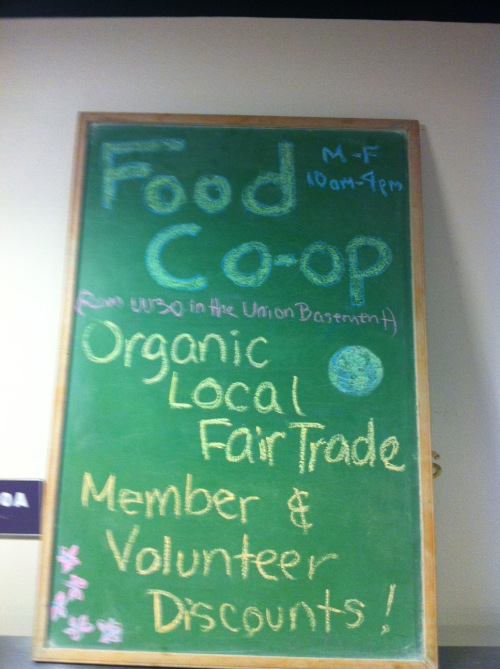 Food
M-F
10am-4pm
Co-op
UU30 in the Union Basement)
Organic
Local
Fair Trade
Member &
Volunteer
Discounts!
OA